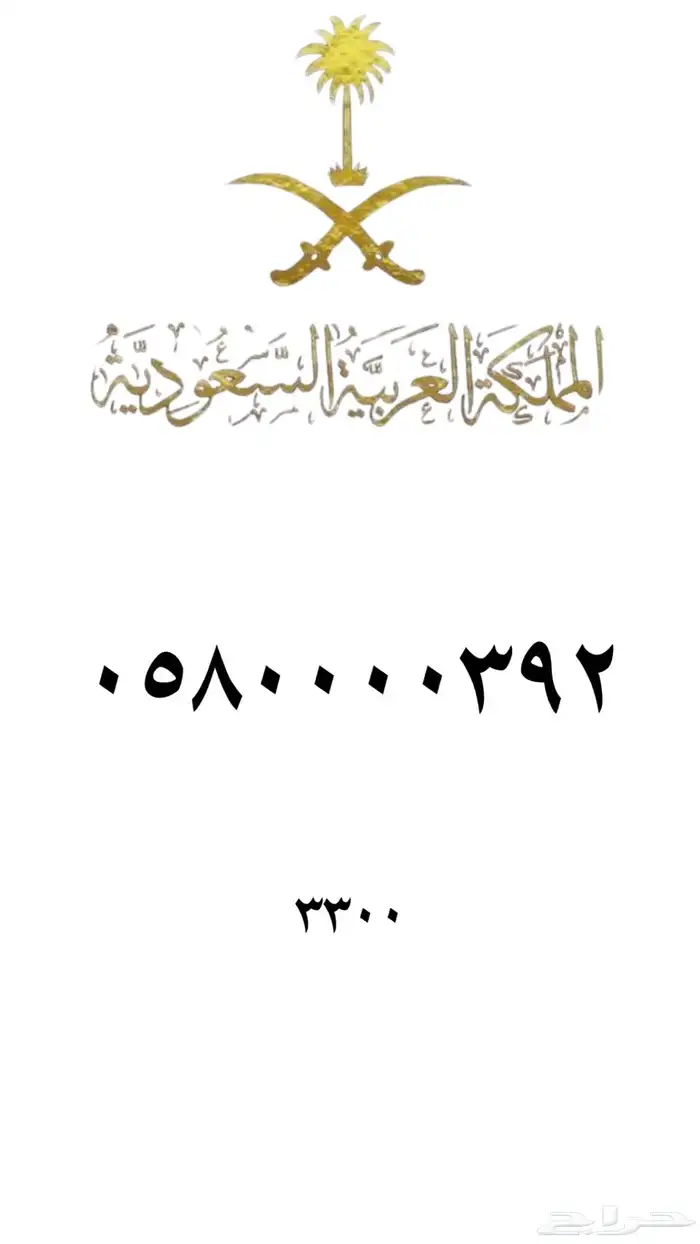 المملكة العربية السعودية
٠٥٨٠٠٠٠٣٩٢
٣٣٠٠
حراج